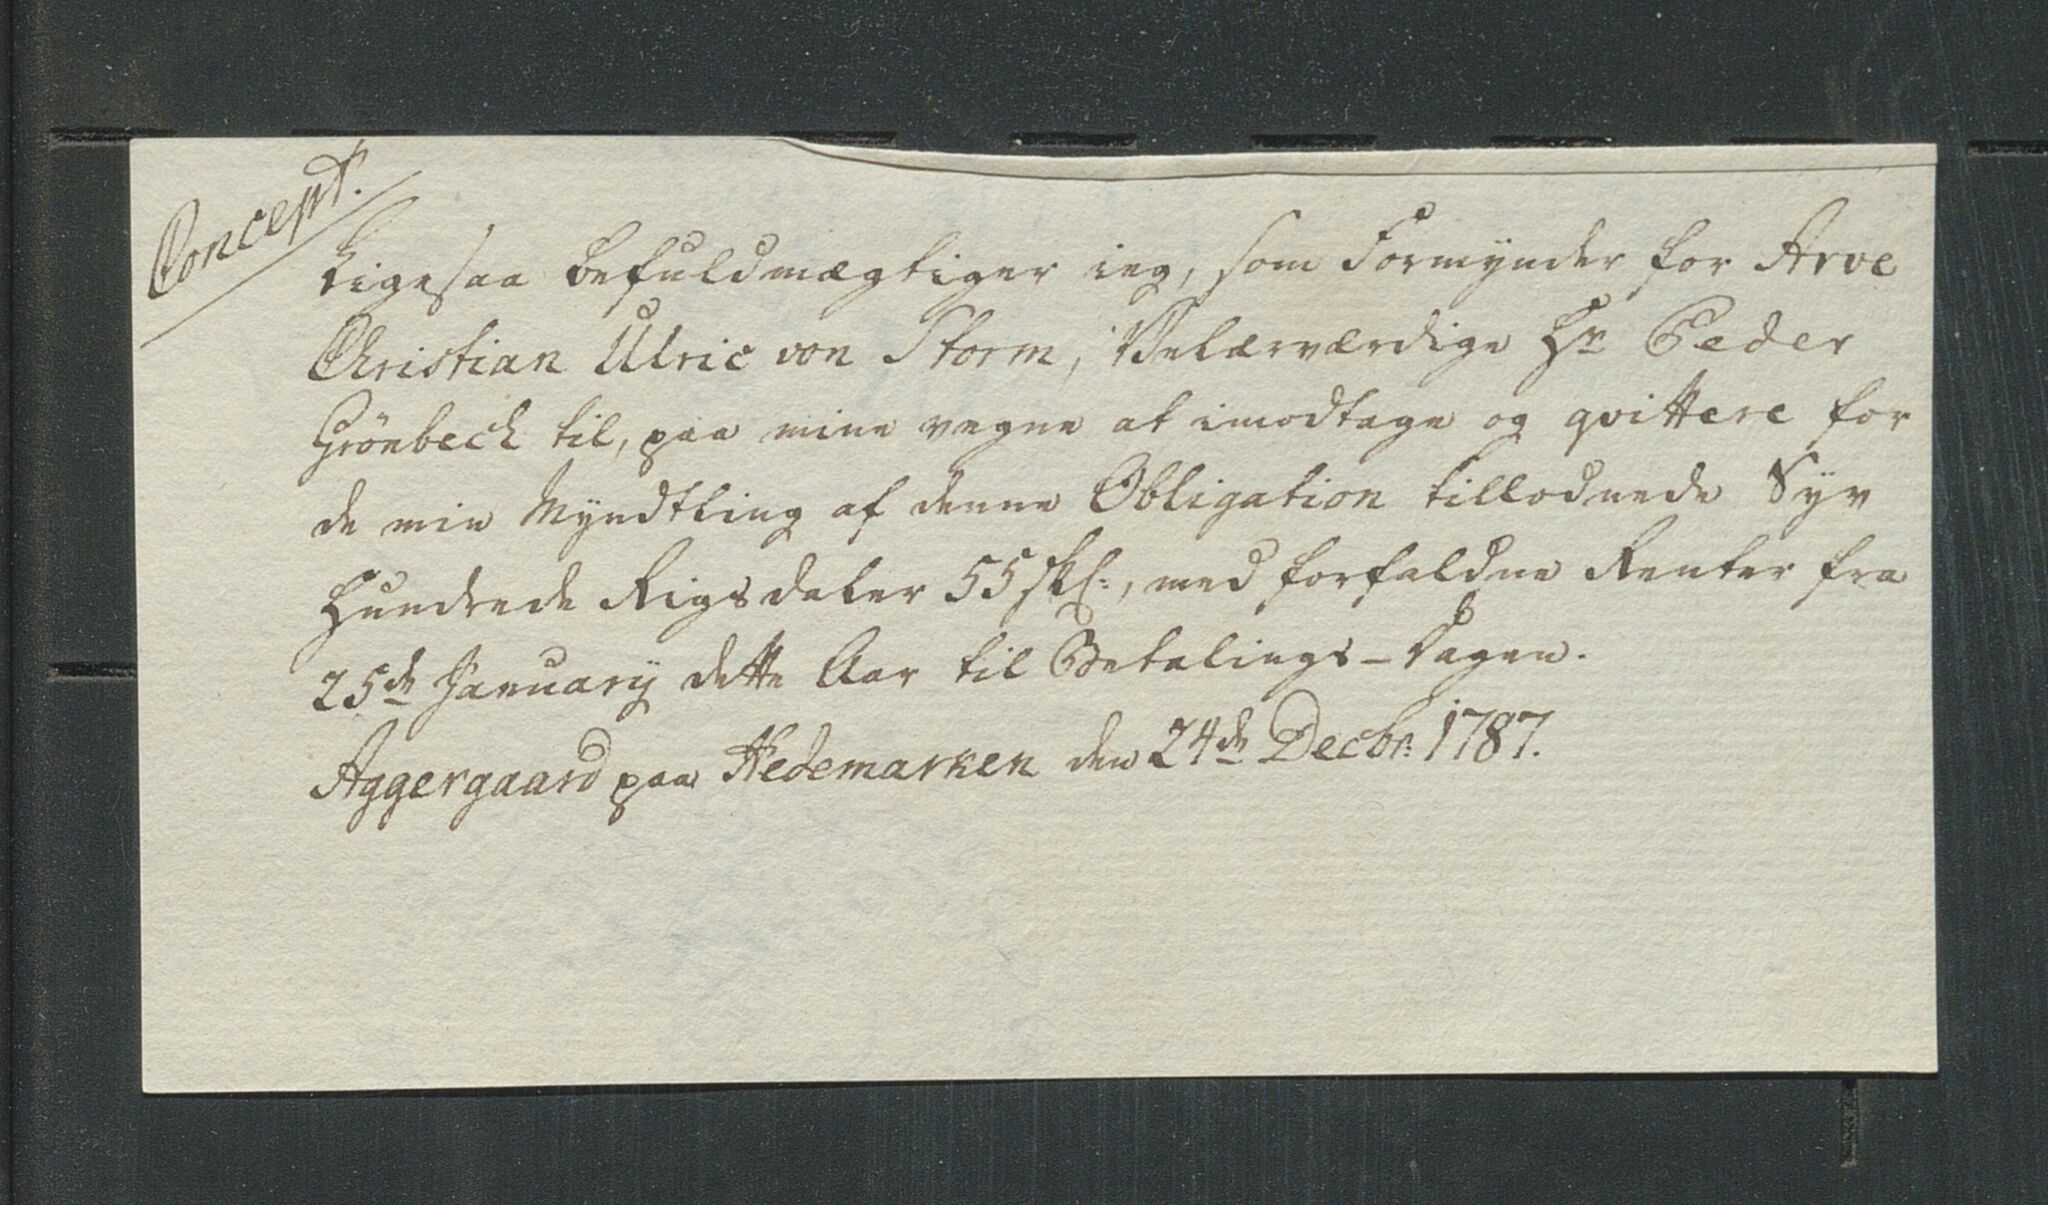 Concept.
Ligesaa befuldmægtiger ieg, som Formynder for Arve
Christian Ulric von Storm, Velærværdige Hr Peder
Grönbech til, paa mine vegne at imodtage og qvittere for
de min Myndtling af denne Obligation tillodnede Syv
Hundrede Rigsdaler 55 skl:, med forfaldne Renter fra
25de January dette Aar til Betalings-Dagen.
Aggergaard paa Hedemarken den 24de Decbr: 1787.